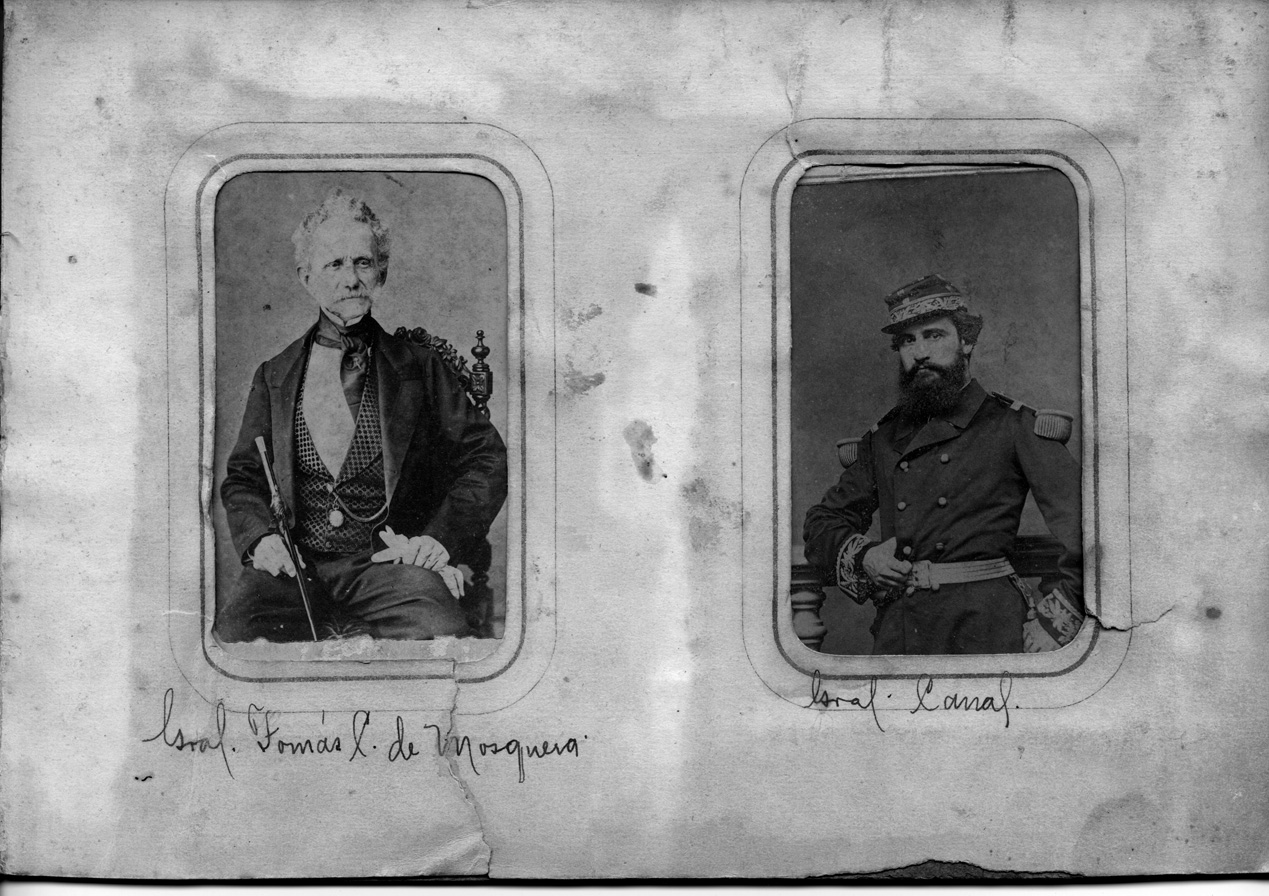 Gral. Tomás C. de Mosquera.
Gral. Canal.